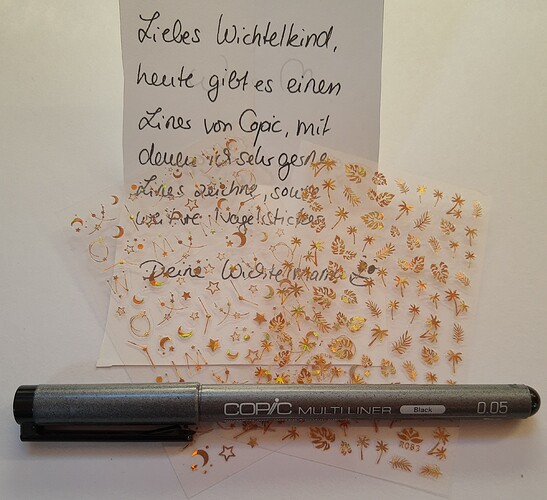 Liebes Wichtelkind,
heute gibt es einen
Liner von Copic, mit
denen ich sehr gerne
Lines zeichne, sowie
weitere Nagelsticker.
Deine Wichtelmama
COPIC MULTILINER Black 0.05
R083